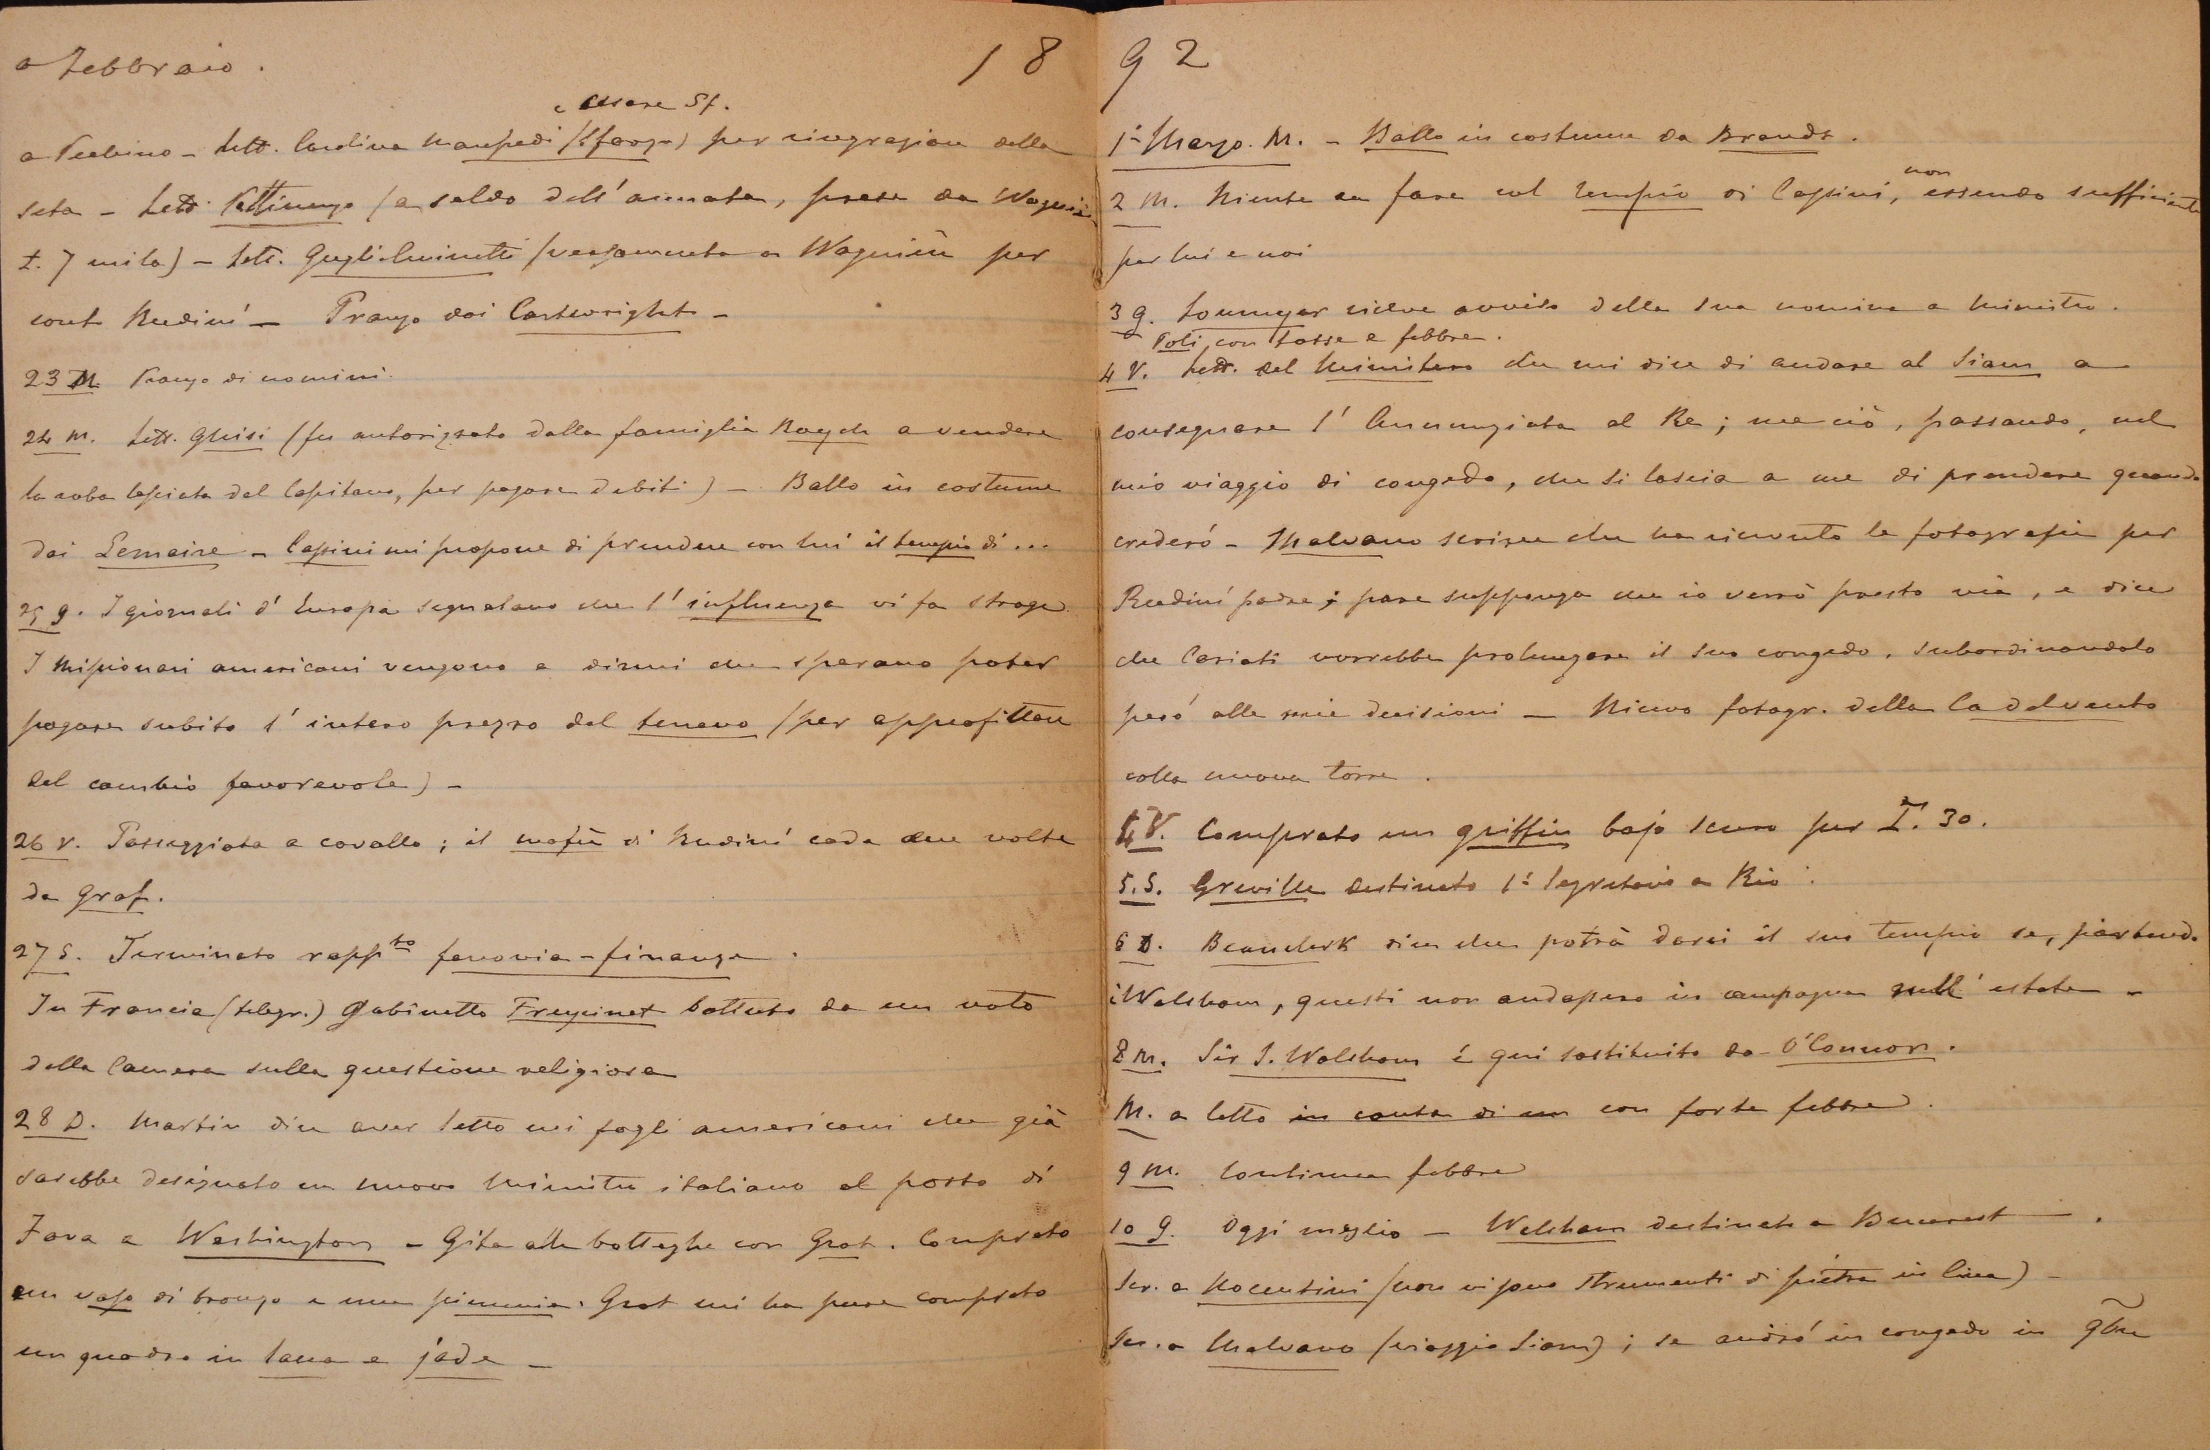 Febbraio. 18
e Cesare Sf.
a Pechino - Lett. Carolina Manfredi (Sforza) per ringraziare della
seta - Lett. Pettinengo (a saldo dell'annata, prese da Wagnière
£. 7 mila) - Lett. Guglielminetti (versamento a Wagnière per
conto Rudinì - Pranzo dai Cartwright -
23 M. Pranzo di uomini.
24 M. Lett. Ghisi (fu autorizzato dalla famiglia a vendere
la roba lasciata dal Capitano, per pagare debiti) - Ballo in costume
dai Lemaire - Cassini mi propone di prendere con lui il tempio di ...
25 G. I giornali d'Europa segnalano che l'influenza vi fa strage.
I missionari americani vengono a dirmi che sperano poter
pagare subito l'intero prezzo del terreno (per approfittare
del cambio favorevole) -
26 V. Passeggiata a cavallo; il mafù di Rudinì cade due volte
da Graf.
27 S. Terminato rappto ferrovia-finanze.
In Francia (telegr.) Gabinetto Freycinet battuto da un voto
della Camera sulla questione religiosa
28 D. Martin dice aver letto nei fogli americani che già
sarebbe designato un nuovo Ministro italiano al posto di
Fava a Washington - Gita alle botteghe con Grot. Comprato
un vaso di bronzo e una. Grot mi ha pure comprato
un quadro in lacca e jade -
92
1° Marzo. M. - Ballo in costume da Brandt.
2 M. Niente da fare col tempio di Cassini, non essendo sufficiente
per lui e noi
3 G. Loumyer riceve avviso della sua nomina a Ministro.
Poli con tosse e febbre.
4 V. Lett. del Ministero che mi dice di andare al Siam a
consegnare l'Annunziata al Re; ma ciò, passando, nel
mio viaggio di congedo, che si lascia a me di prendere quando
crederó - Malvano scrive che ha ricevuto le fotografie per
Rudinì padre; pare supponga che io verrò presto via, e dice
che Cariati vorrebbe prolungare il suo congedo, subordinandolo
peró alle mie decisioni - Ricevo fotogr. della Ca delvento
colla nuova torre.
4 V. Comprato un griffin bajo scuro per T. 30.
5. S. Greville destinato 1° Segretario a Rio.
6 D. Beauclerk dice che potrà darci il suo tempio se, partendo
i Walsham, questi non andassero in campagna nell'estate -
8 M. Sir J. Walsham é qui sostituito da O'Connor.
M. a letto in conta di un con forte febbre.
9 M. Continua febbre
10 G. Oggi meglio - Walsham destinato a Bucarest -.
Scr. a Nocentini (non vi sono strumenti di pietra in Cina) -
Scr. a Malvano (viaggio Siam); se andró in congedo in 9bre